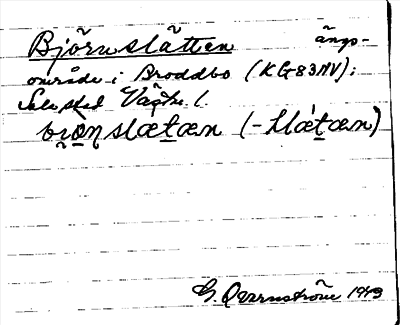 Björnslätten ängs-
område i Broddbo (KG83NV);
Sala stad Västm. l.
bi̯ö̱ṇslæt̠æn (-t̠læ̀t̠æn)
G. Qvarnström 1943